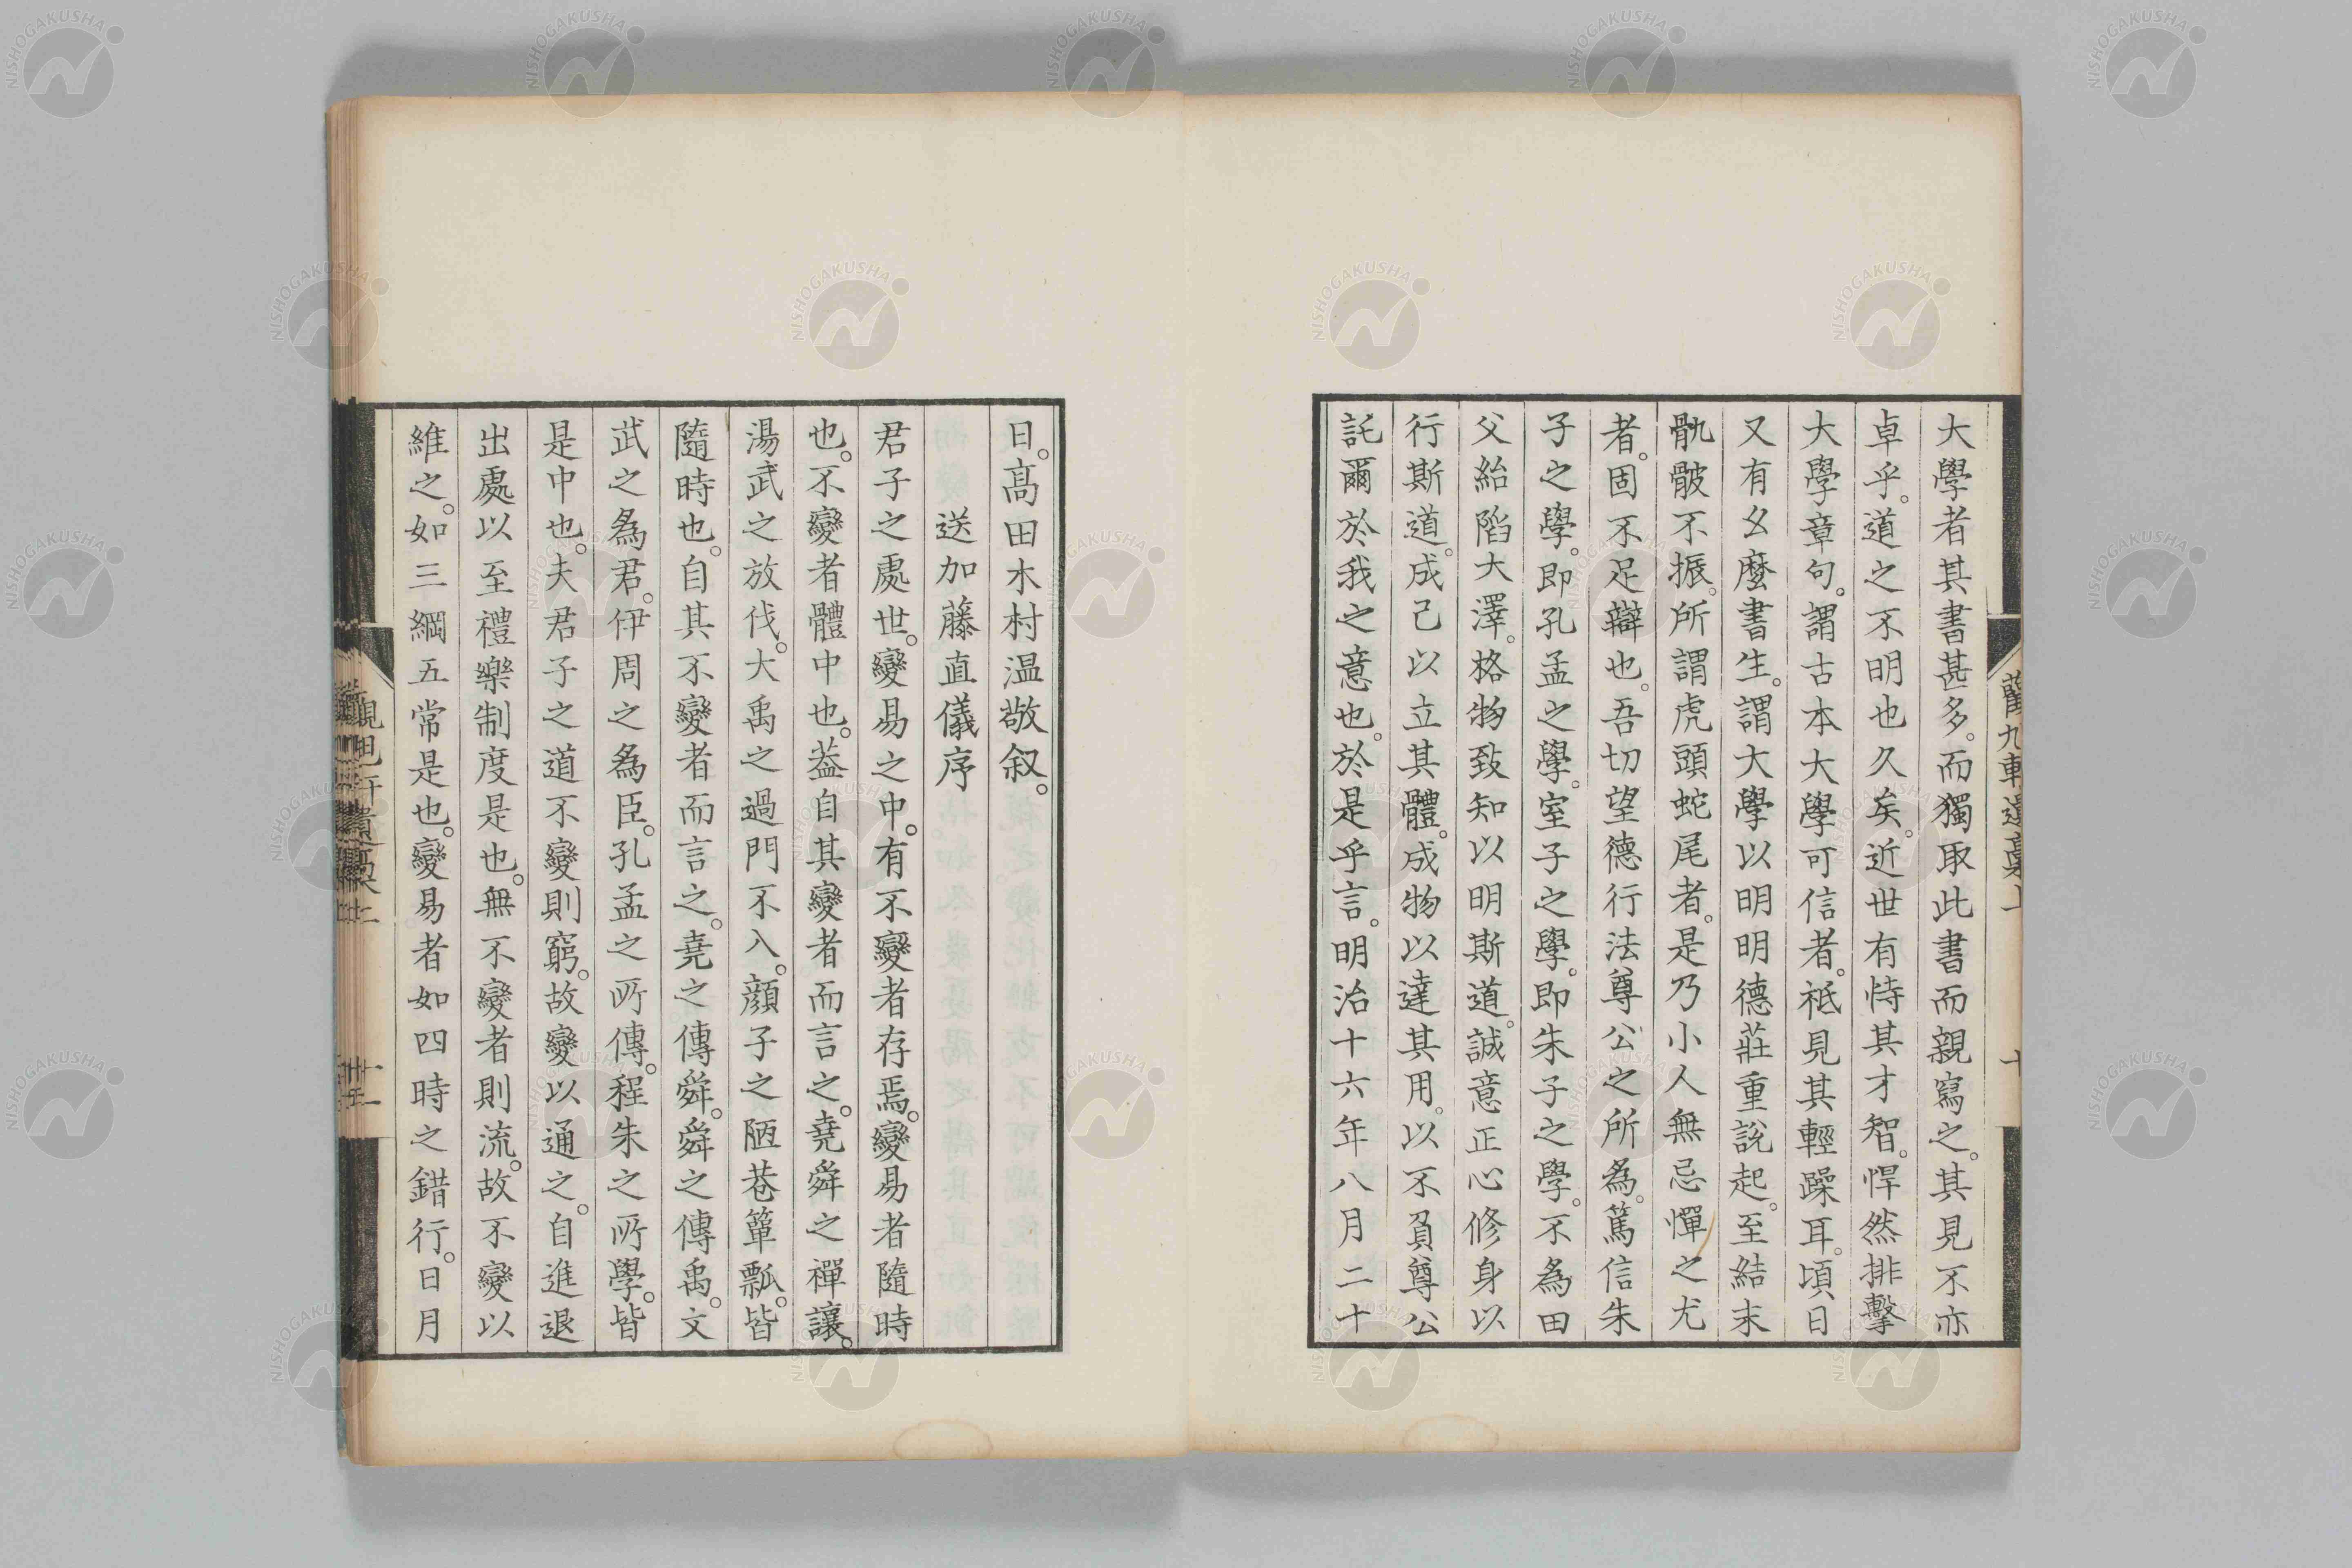 大學者其書甚多。而獨取此書而親寫之。其見不亦
卓乎。道之不明也久矣。近世有恃其才智。悍然排擊
大學章句。謂古本大學可信者。祗見其輕躁耳。頃日
又有幺麼書生。謂大學以明明德莊重說起。至結末
骩骳不振。所謂虎頭蛇尾者。是乃小人無忌憚之尤
者。固不足辯也。吾切望德行法尊公之所為。篤信朱
子之學。即孔孟之學。室子之學。即朱子之學。不為田
父紿陷大澤。格物致知以明斯道。誠意正心修身以
行斯道。成己以立其體。成物以達其用。以不負尊公
託爾於我之意也。於是乎言。明治十六年八月二十
日。髙田木村温敬叙。
送加藤直儀序
君子之處世。變易之中。有不變者存焉。變易者隨時
也。不變者體中也。葢自其變者而言之。堯舜之禪讓。
湯武之放伐。大禹之過門不入。顔子之陋巷簞瓢。皆
隨時也。自其不變者而言之。堯之傳舜。舜之傳禹。文
武之為君。伊周之為臣。孔孟之所傳。程朱之所學。皆
是中也。夫君子之道不變則窮。故變以通之。自進退
出處以至禮樂制度是也。無不變者則流。故不變以
維之。如三綱五常是也。變易者如四時之錯行。日月